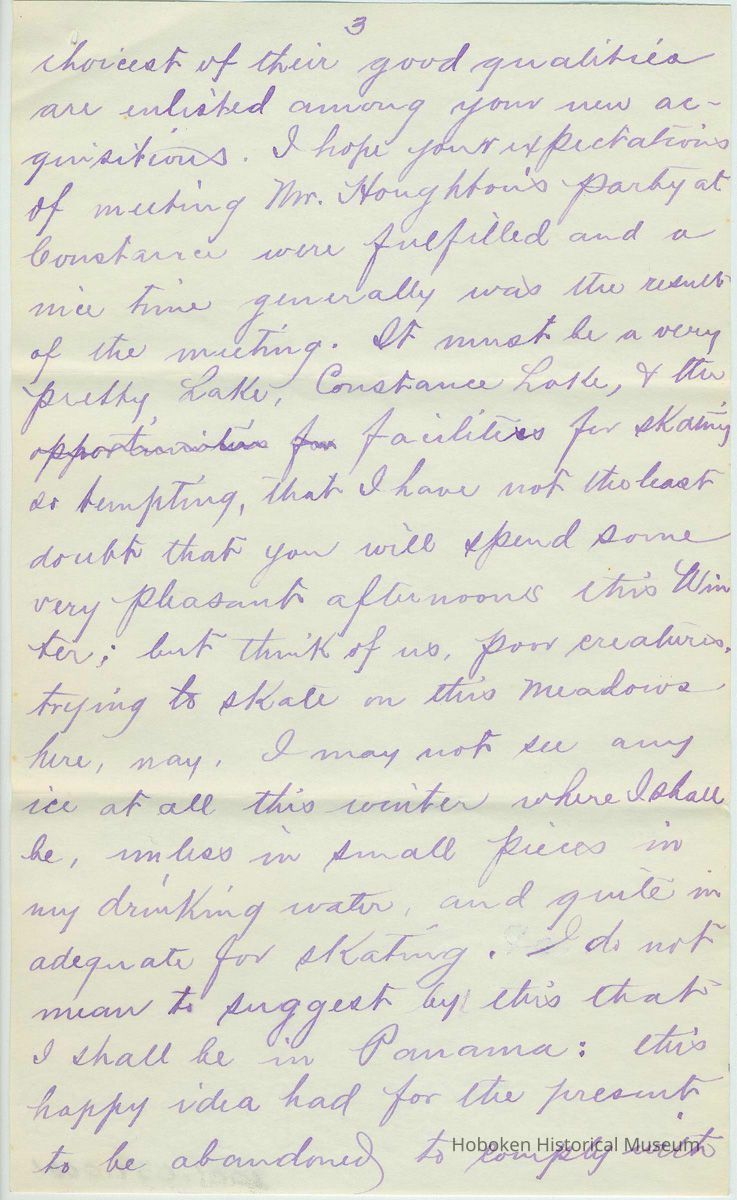 3
choicest of their good qualities
are enlisted among your new ac-
quisitions. I hope your expectations
of meeting Mr. Houghton's party at
Constance were fulfilled and a
nice time generally was the result
of the meeting. It must be a very
pretty Lake, Constance Lake, & the
opportunities for facilities for skating
so tempting, that I have not the least
doubt that you will spend some
very pleasant afternoons this Win
ter; but think of us, poor creatures,
trying to skate on this meadows
here, nay, I may not see any
ice at all this winter where I shall
be, unless in small pieces in
my drinking water, and quite in
adequate for skating. I do not
mean to suggest by this that
I shall be in Panama: this
happy idea had for the present
to be abandoned to comply with
Hoboken Historical Museum